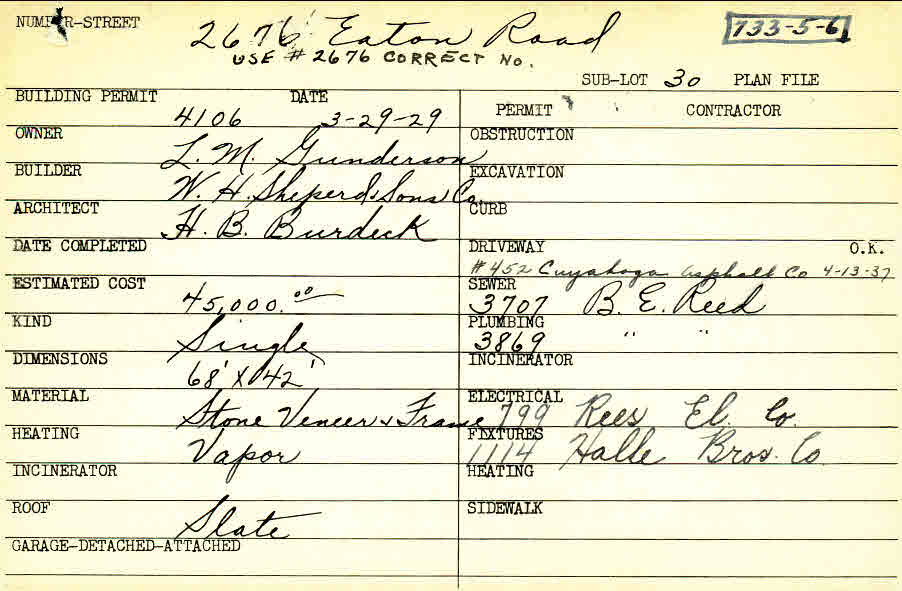 NUMBER-STREET 2676 Eaton Road 733-5-6
USE # 2676 CORRECT No.
SUB-LOT 30 PLAN FILE
BUILDING PERMIT 4106 DATE 3-29-29
OWNER L. M. Gunderson
BUILDER W. H. Sheperd & Sons Co.
ARCHITECT H. B. Burdeck
DATE COMPLETED
ESTIMATED COST 45,000.00
KIND Single
DIMENSIONS 68' X 42'
MATERIAL Stone Veneer & Frame
HEATING Vapor
INCINERATOR
ROOF Slate
GARAGE-DETACHED-ATTACHED
PERMIT CONTRACTOR
OBSTRUCTION
EXCAVATION
CURB
DRIVEWAY O.K.
#452 Cuyahoga Asphalt Co 4-13-37
SEWER
3707 B. E. Reed
PLUMBING
3869 " "
INCINERATOR
ELECTRICAL
799 Rees El. Co.
FIXTURES
1114 Halle Bros. Co
HEATING
SIDEWALK